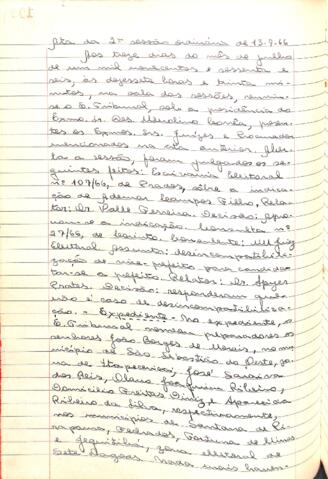 Ata da 2ª sessão ordinária de 13.7.66
Aos treze dias do mês de julho
de um mil novecentos e sessenta e
seis, às dezessete horas e trinta mi-
nutos, na sala das sessões, reuniu-
se o E. Tribunal, sob a presidência do
Exmo. Sr. Des. Merolino Corrêa, presen-
tes os Exmos. Srs. Juízes e Procurador
mencionados na ata anterior. Aber-
ta a sessão, foram julgados os se-
guintes feitos: Escrivania Eleitoral
nº 107/66, de Prados, sôbre a indica-
ção de Ademar Campos Filho, Rela-
tor: Dr. Valle Ferreira. Decisão: Apro-
varam-se a indicação. Consulta nº
27/66, de Corinto. Consulente: MM Juiz
Eleitoral. Assunto: desincompatibili-
zação de vice-prefeito para candida-
tar-se a prefeito. Relator: Dr. Ayres
Prates. Decisão: responderam que
não é caso de desincompatibiliza-
ção. - Expediente - No expediente, o
E. Tribunal nomeou preparadores os
senhores João Borges de Morais, no mu-
nicípio de São Sebastião do Oeste, zo-
na de Itapecerica; José Saraiva
dos Reis, Olavo Joaquim Ribeiro,
Domicílio Freitas Diniz e Aparecida
Ribeiro da Silva, respectivamente,
nos municípios de Santana de Pi-
rapama, Fortuna de Minas
e Jequitibá, zona eleitoral de
Sete Lagoas. Nada mais haven-